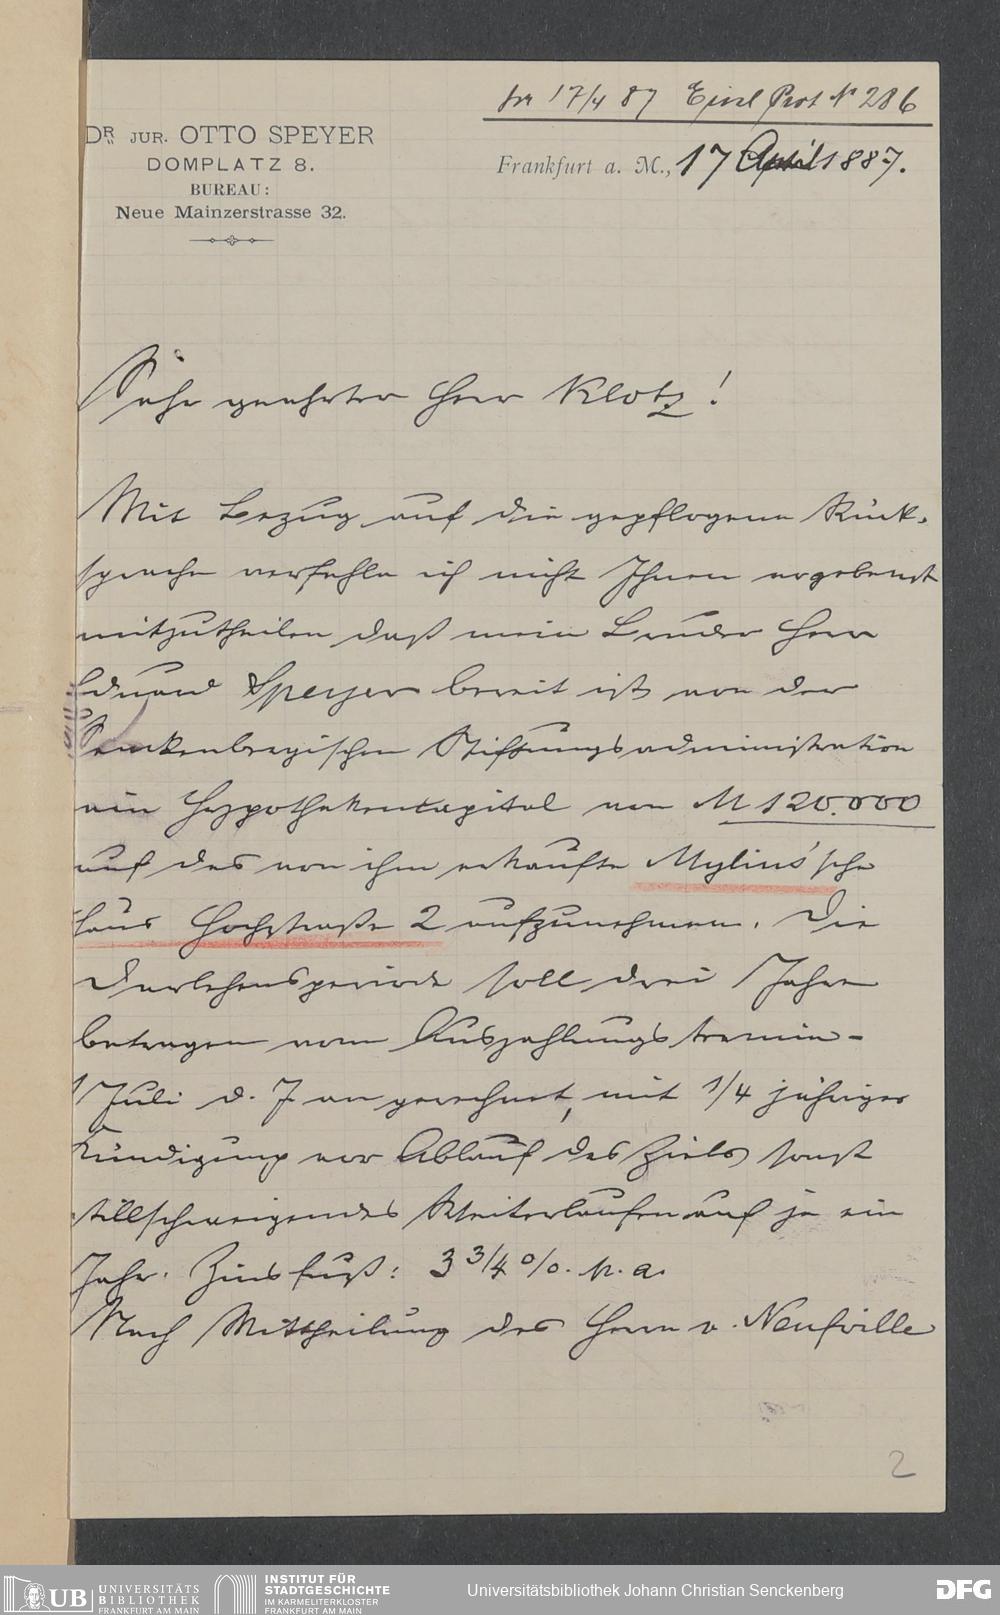 pr 17/4 87 Einl Prot N 286
DR JUR. OTTO SPEYER
DOMPLATZ 8.
BUREAU:
Neue Mainzerstrasse 32.
Frankfurt a. M., 17 April 1887.
Sehr geehrter Herr Klotz!
Mit Bezug auf die gepflogene Rück-
sprache verfehle ich nicht Ihnen ergebenst
mitzutheilen daß mein Bruder Herr
Eduard Speyer bereit ist von der
Senckenbergischen Stiftungsadministration
ein Hypothekencapital von M 120.000
auf das von ihm erkaufte Mylius'sche
Haus Hochstraße 2 aufzunehmen. Die
Darlehensperiode soll drei Jahre
betragen vom Auszahlungstermin -
1 Juli d. J. an gerechnet, mit 1/4 jähriger
Kündigung vor Ablauf des Ziels, sonst
stillschweigendes Weiterlaufen auf je ein
Jahr. Zinsfuß: 3 3/4 %. p. a.
Nach Mittheilung des Herrn v. Neufville
2
UB UNIVERSITÄTS
BIBLIOTHEK
FRANKFURT AM MAIN
INSTITUT FÜR
STADTGESCHICHTE
IM KARMELITERKLOSTER
FRANKFURT AM MAIN
Universitätsbibliothek Johann Christian Senckenberg
DFG